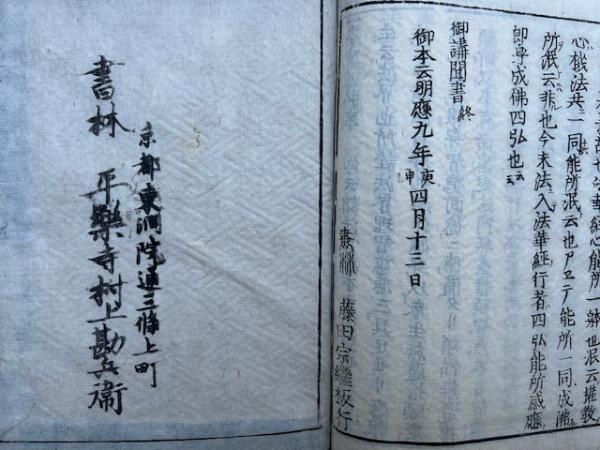 心機法共一同能所泯云也アヱテ能所一同成佛
所泯云非也今末法入法華經行者四弘能所感應
即身成佛四弘也云云
御講聞書 終
御本云明應九年庚申四月十三日
藤田宗繼板行
京都東洞院通三條上町
書林 平樂寺村上勘兵衞